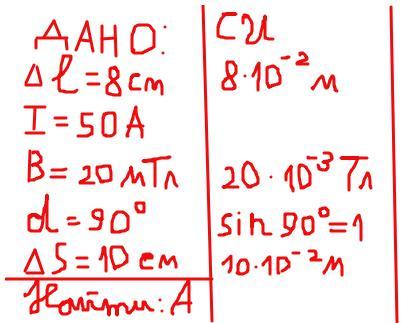 ДАНО:
Δl = 8 см
I = 50 А
B = 20 мТл
d = 90°
ΔS = 10 см
Найти: А
СИ
8·10⁻² м
20·10⁻³ Тл
sin 90° = 1
10·10⁻² м